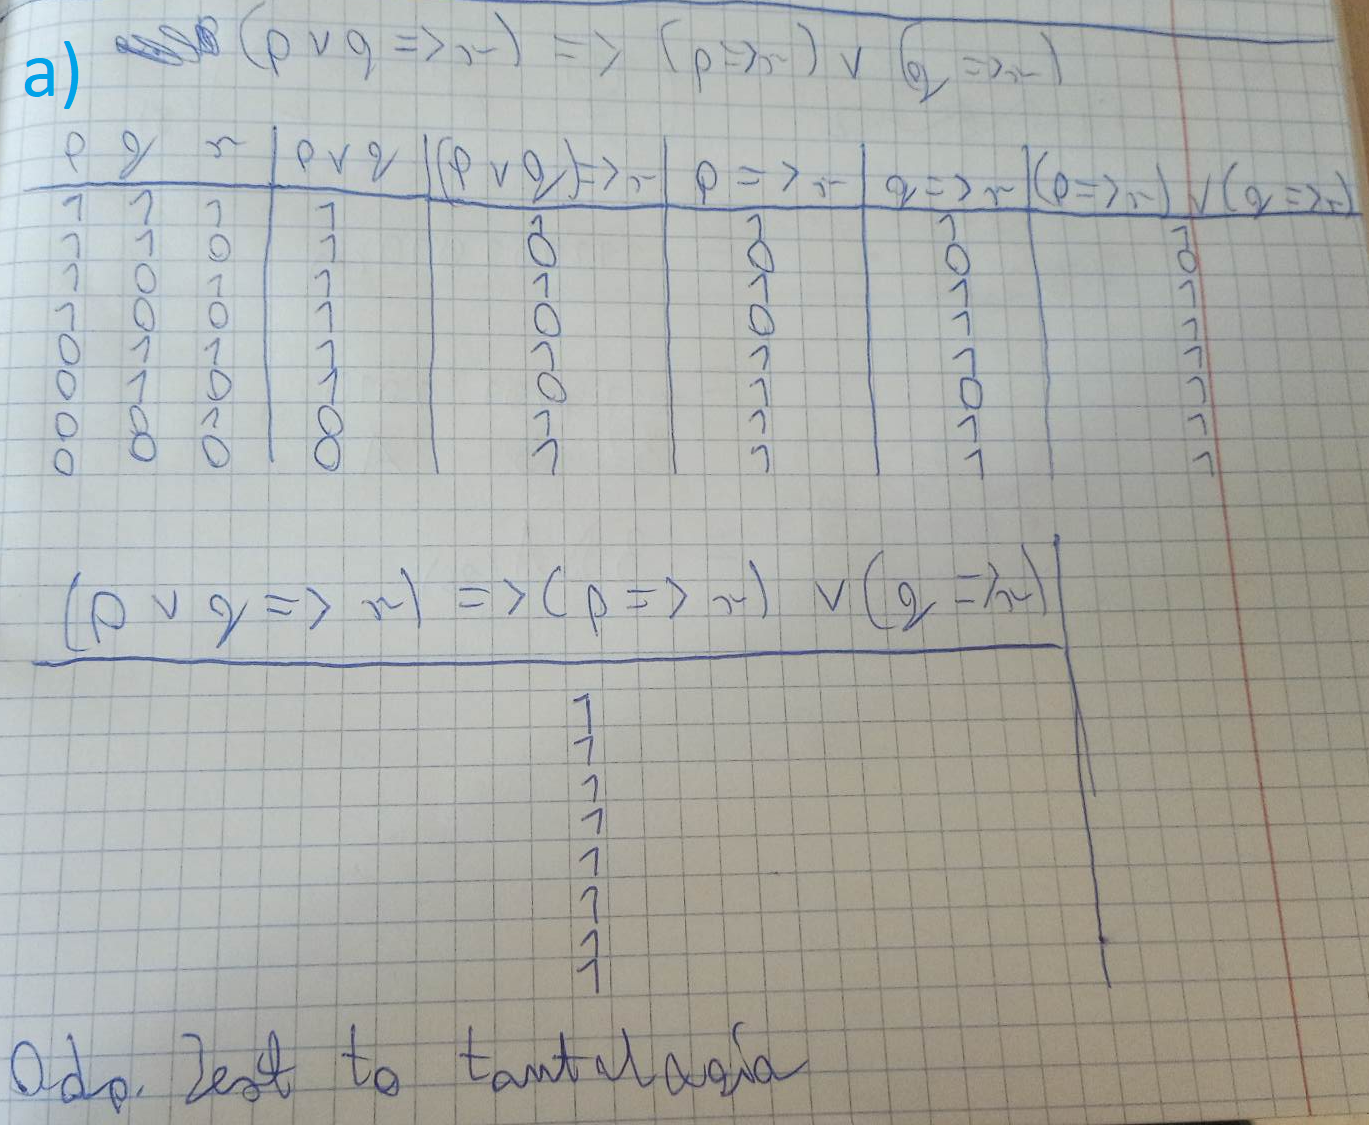 a) (p ∨ q => r) => (p => r) ∨ (q => r)
p q r | p ∨ q | (p ∨ q) => r | p => r | q => r | (p => r) ∨ (q => r)
1 1 1 1 1 1 1 1
1 1 0 1 0 0 0 0
1 0 1 1 1 1 1 1
1 0 0 1 0 0 1 1
0 1 1 1 1 1 1 1
0 1 0 1 0 1 0 1
0 0 1 0 1 1 1 1
0 0 0 0 1 1 1 1
(p ∨ q => r) => (p => r) ∨ (q => r)
1
1
1
1
1
1
1
1
Odp. Jest to tautologia